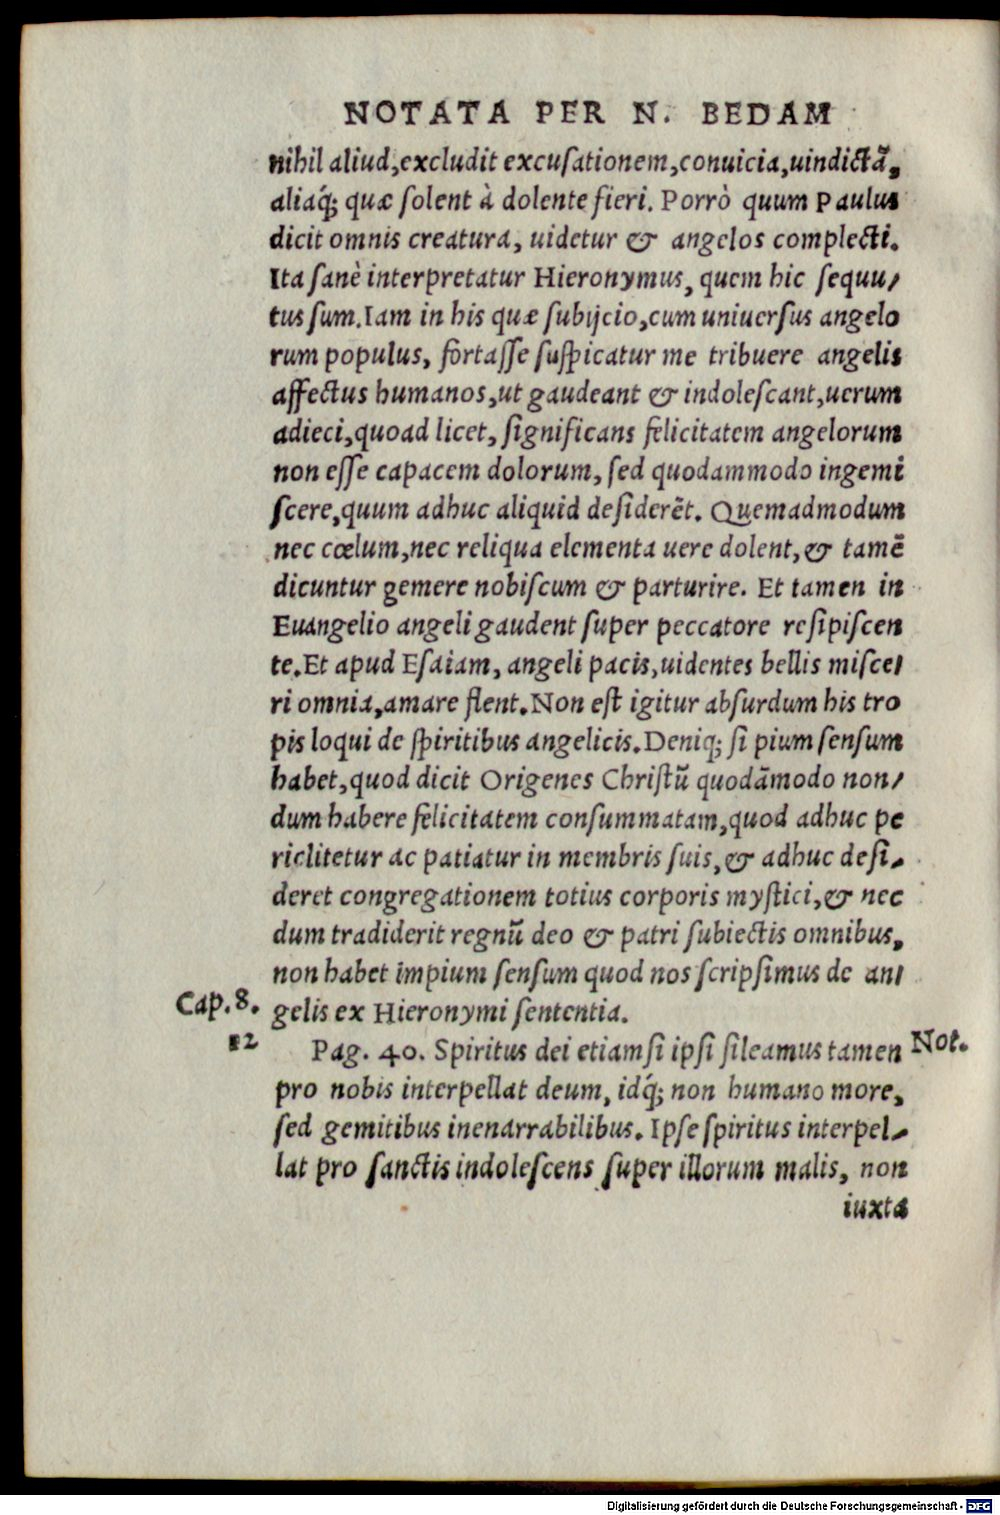 NOTATA PER N. BEDAM
nihil aliud, excludit excusationem, conuicia, uindictã,
aliaq́; quæ solent à dolente fieri. Porrò quum Paulus
dicit omnis creatura, uidetur & angelos complecti.
Ita sanè interpretatur Hieronymus, quem hic sequu/
tus sum. Iam in his quæ subijcio, cum uniuersus angelo
rum populus, fortasse suspicatur me tribuere angelis
affectus humanos, ut gaudeant & indolescant, uerum
adieci, quoad licet, significans felicitatem angelorum
non esse capacem dolorum, sed quodammodo ingemi
scere, quum adhuc aliquid desiderẽt. Quemadmodum
nec cœlum, nec reliqua elementa uere dolent, & tamẽ
dicuntur gemere nobiscum & parturire. Et tamen in
Euangelio angeli gaudent super peccatore resipiscen
te. Et apud Esaiam, angeli pacis, uidentes bellis misce/
ri omnia, amare flent. Non est igitur absurdum his tro
pis loqui de spiritibus angelicis. Deniq; si pium sensum
habet, quod dicit Origenes Christũ quodãmodo non/
dum habere felicitatem consummatam, quod adhuc pe
riclitetur ac patiatur in membris suis, & adhuc desi/
deret congregationem totius corporis mystici, & nec
dum tradiderit regnũ deo & patri subiectis omnibus,
non habet impium sensum quod nos scripsimus de an/
Cap. 8. gelis ex Hieronymi sententia.
12 Pag. 40. Spiritus dei etiamsi ipsi sileamus tamen Not.
pro nobis interpellat deum, idq́; non humano more,
sed gemitibus inenarrabilibus. Ipse spiritus interpel/
lat pro sanctis indolescens super illorum malis, non
iuxta
Digitalisierung gefördert durch die Deutsche Forschungsgemeinschaft - DFG